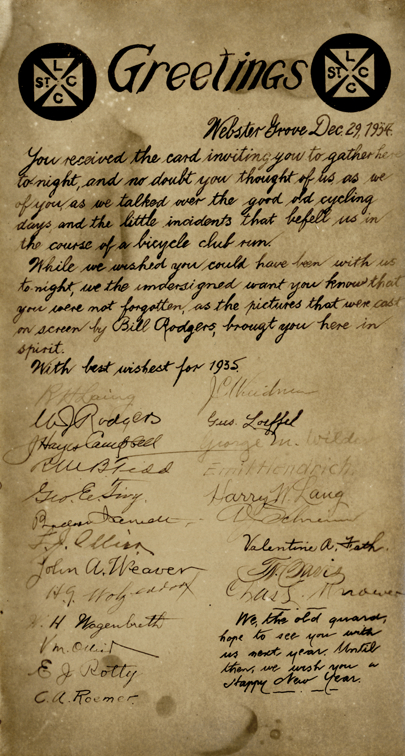 L
ST C
C
Greetings
L
ST C
C
Webster Grove Dec 29, 1934.
You received the card inviting you to gather here
tonight, and no doubt you thought of us as we
of you as we talked over the good old cycling
days and the little incidents that befell us in
the course of a bicycle club run.
While we wished you could have been with us
tonight, we the undersigned want you know that
you were not forgotten, as the pictures that were cast
on screen by Bill Rodgers, brougt you here in
spirit.
With best wishest for 1935.
R H Laing
W J Rodgers
J Hayes Campbell
Geo. E. Tivy.
John A. Weaver
H H Wagenbreth
E J Rotty
C. A. Roemer.
Gus. Loeffel
George M. Wilde
Harry W. Lang
Valentine A. Fath.
Chas
We, the old guard,
hope to see you with
us next year. Until
then, we wish you a
Happy New Year.